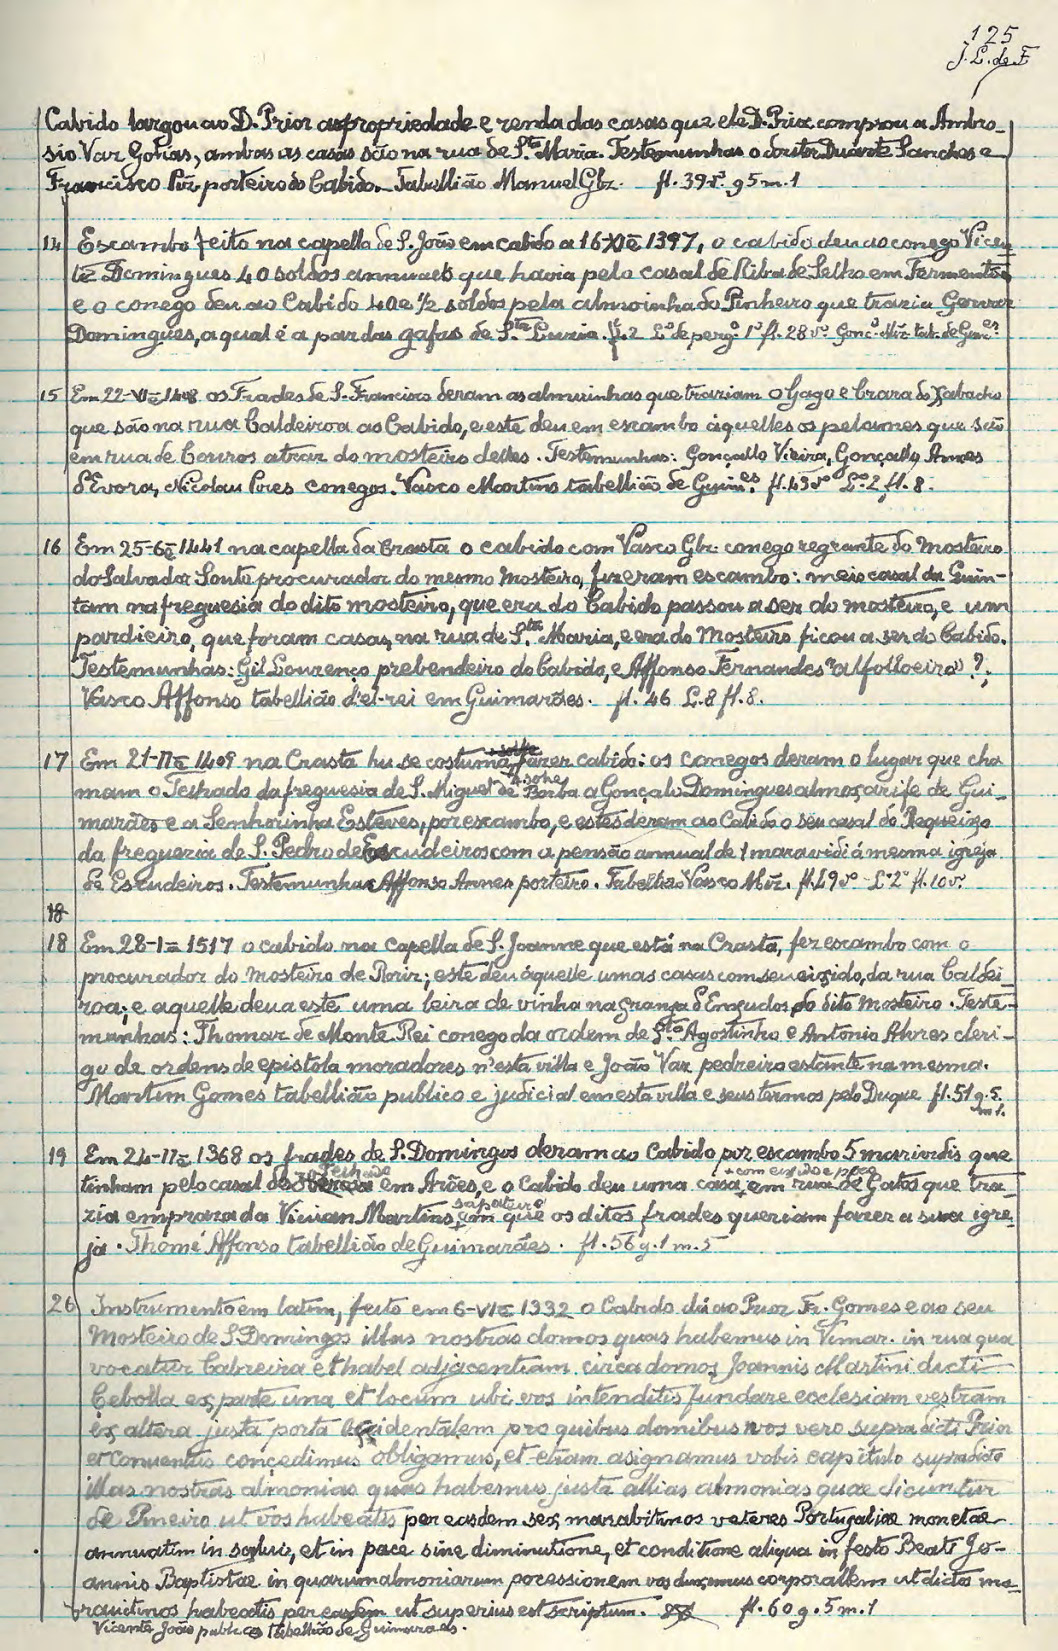 125
J. L. de F
Cabido largou ao D. Prior a propriedade e renda das casas que ele D. Prior comprou a Ambro-
sio Vaz Golias, ambas as casas são na rua de S.ta Maria. Testemunhas o doutor Duarte Sanches e
Francisco Piz porteiro do Cabido. Tabellião Manuel Glz. fl. 39 v.º g 5 m. 1
14 Escambo feito na capella de S. João em cabido a 16-XI-1397, o cabido deu ao conego Vicen-
te Domingues 40 soldos annuaes que havia pelo casal de Riba de Selho em Fermentões
e o conego deu ao Cabido 40 e 1/2 soldos pela almoinha do Pinheiro que trazia Gonçar
Domingues, a qual é a par das gafas de S.ta Luzia. L.º de perg.º 1º fl. 28 vº. Gonç.º Miz tab. de Guim.es
15 Em 22-VI-1408 os Frades de S. Francisco deram as almuinhas que traziam o Gago e Crara do Rabacho
que são na rua Caldeiroa ao Cabido, e este deu em escambo áquelles os pelames que são
em rua de Couros atraz do mosteiro delles. Testemunhas: Gonçallo Vieira, Gonçallo Annes
d'Evora, Nicolau Pires conegos. Vasco Martins tabellião de Guim.es fl. 43 vº L.º 2 fl. 8.
16 Em 25-6-1441 na capella da Crasta o cabido com Vasco Glz. conego regrante do Mosteiro
do Salvador Souto procurador do mesmo Mosteiro, fizeram escambo: meio casal da Quin-
tam na freguesia do dito mosteiro, que era do Cabido passou a ser do mosteiro, e um
pardieiro, que foram casas, na rua de S.ta Maria, e era do Mosteiro ficou a ser do Cabido.
Testemunhas: Gil Lourenço prebendeiro do Cabido, e Affonso Fernandes "alfolloeiro" ?.
Vasco Affonso tabellião d'el-rei em Guimarães. fl. 46 L. 8 fl. 8.
17 Em 21-II-1409 na Crasta hu se costuma fazer cabido: os conegos deram o lugar que cha
mam o Telhado da freguesia de S. Miguel de Borba a Gonçalo Domingues almoxarife de Gui-
marães e a Senhorinha Esteves, por escambo, e estes deram ao Cabido o seu casal do Requeixo
da freguezia de S. Pedro de Escudeiros com a pensão annual de 1 maravidi á mesma igreja
de Escudeiros. Testemunha Affonso Annes porteiro. Tabellião Vasco Miz. fl. 49 vº L.º 2º fl. 10 vº.
18
18 Em 28-I-1517 o cabido na capella de S. Joanne que está na Crasta, fez escambo com o
procurador do mosteiro de Roriz; este deu áquelle umas casas com seu eixido, da rua Caldei
roa; e aquelle deu a este uma leira de vinha na granja d'Enxudos do dito mosteiro. Teste-
munhas: Thomaz de Monte Rei conego da ordem de S.to Agostinho e Antonio Alvres cleri-
go de ordens de epistola moradores n'esta villa e João Vaz pedreiro estante na mesma.
Martim Gomes tabellião publico e judicial em esta villa e seus termos pelo Duque fl. 51 g. 5.
m 1.
19 Em 24-II-1368 os frades de S. Domingos deram ao Cabido por escambo 5 maravidis que
tinham pelo casal de em Arões, e o Cabido deu uma casa + em rua de Gatos que tra-
+ com eixido e poço
zia emprazada Vivian Martins sapateiro em que os ditos frades queriam fazer a sua igre
ja. Thomé Affonso tabellião de Guimarães. fl. 56 g. 1 m. 5
26 Instrumento em latim, feito em 6-VI-1332 o Cabido dá ao Prior Fr. Gomes e ao seu
Mosteiro de S. Domingos illas nostras domos quas habemus in Vimar. in rua qua
vocatur Cabreira et habet adjacentiam circa domos Joannis Martini dicti
Cebolla ex parte una et locum ubi vos intenditis fundare ecclesiam vestram
ex altera justa porta occidentalem pro quibus domibus nos vero supradicti Prior
et Conventus concedimus obligamus, et etiam asignamus vobis capitulo supradicto
illas nostras almonias quas habemus justa allias almonias quae dicuntur
de Pineiro ut vos habeatis per easdem sex marabitinos veteres Portugaliae monetae
annuatim in salvo, et in pace sine diminutione, et conditione aliqua in festo Beati Jo-
annis Baptistae in quarum almoniarum pocessionem vos ducimus corporallem ut dictos ma-
ravitinos habeatis per easdem ut superius est scriptum. fl. 60 g. 5 m. 1
Vicente João publico tabellião de Guimarães.